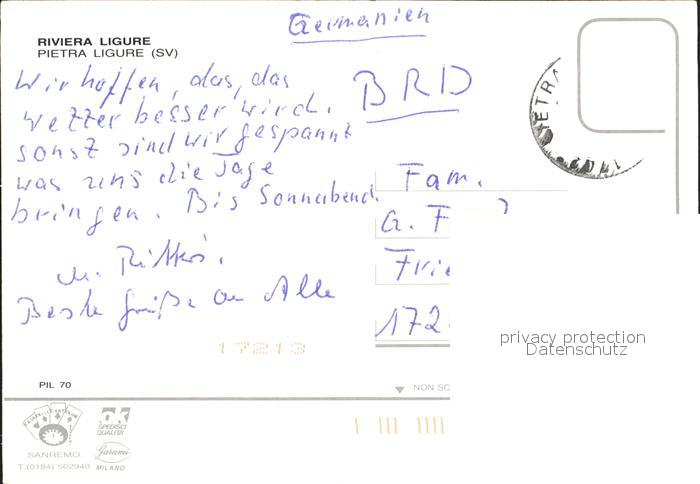 Germanien
RIVIERA LIGURE
PIETRA LIGURE (SV)
BRD
Wir hoffen, das, das
Wetter besser wird.
sonst sind wir gespannt
was uns die Tage
bringen. Bis Sonnabend.
Beste Grüße an Alle
Fam.
G. F
Frie
172
17213
privacy protection
Datenschutz
PIL 70
NON SC
SPEDISCI
QUALITÀ
SANREMO
T.(0184) 502940
Garami
MILANO